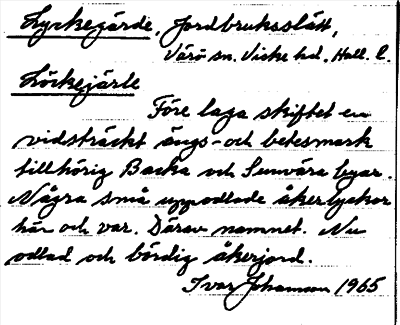 Lyckegärde, Jordbruksslätt,
Värö sn. Viske hd. Hall. l.
Löckejärle
Före laga skiftet en
vidsträckt ängs- och betesmark
tillhörig Backa och Sunvära byar.
Några små uppodlade åkerlyckor
här och var. Därav namnet. Nu
odlad och bördig åkerjord.
Ivar Johansson 1965